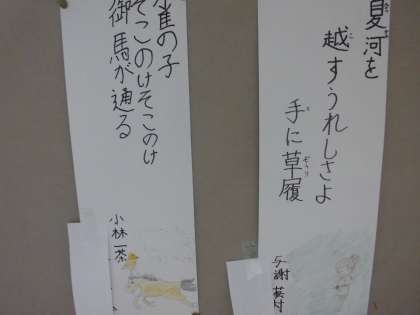 夏河を
越すうれしさよ
手に草履
与謝蕪村
雀の子
そこのけそこのけ
御馬が通る
小林一茶